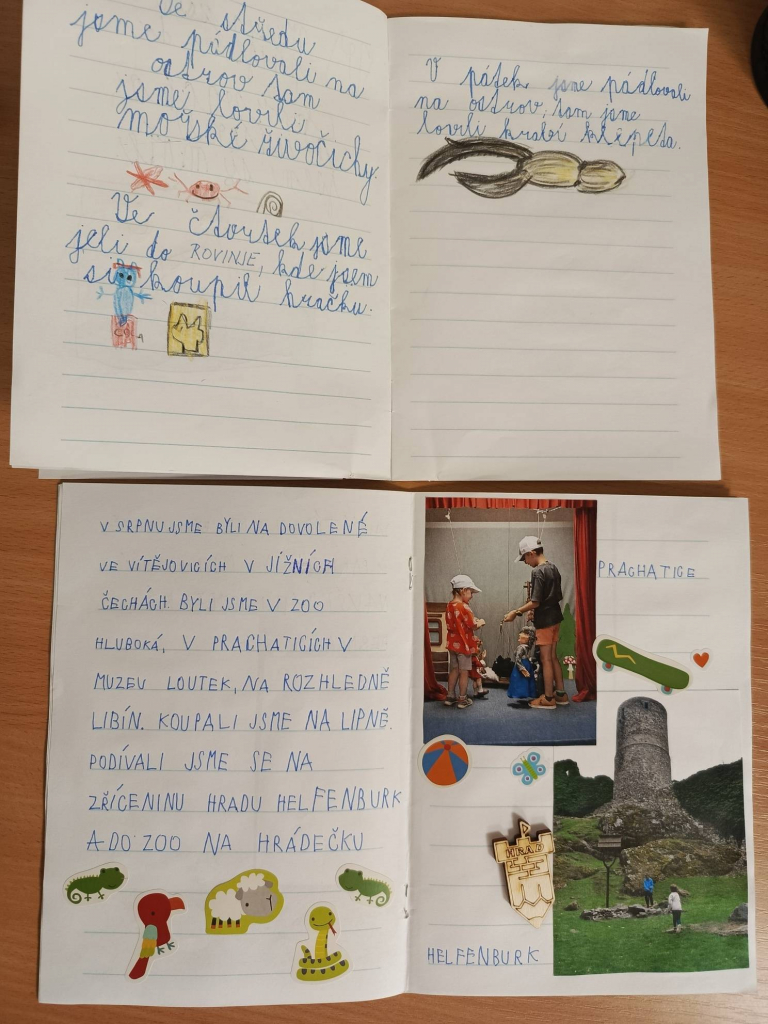 Ve středu
jsme pádlovali na
ostrov tam
jsme lovili
mořské živočichy.
Ve čtvrtek jsme
jeli do ROVINJE, kde jsem
si koupil hračku.
COLA
V pátek jsme pádlovali
na ostrov, tam jsme
lovili krabí klepeta.
V SRPNU JSME BYLI NA DOVOLENÉ
VE VÍTĚJOVICÍCH V JÍŽNÍCH
ČECHÁCH. BYLI JSME V ZOO
HLUBOKÁ, V PRACHATICÍCH V
MUZEU LOUTEK, NA ROZHLEDNĚ
LIBÍN. KOUPALI JSME NA LIPNĚ.
PODÍVALI JSME SE NA
ZŘÍCENINU HRADU HELFENBURK
A DO ZOO NA HRÁDEČKU
PRACHATICE
HRAD
HELFENBURK